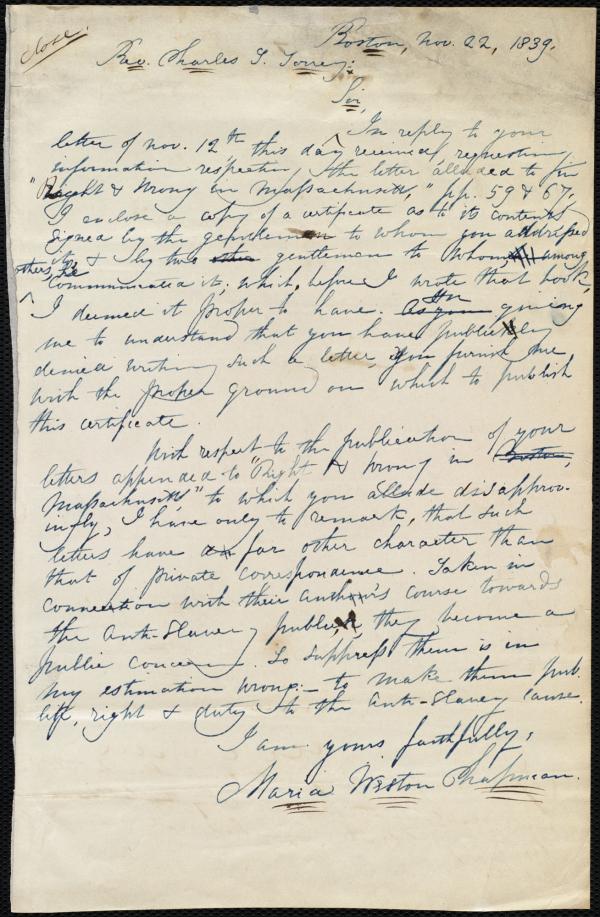 close.
Boston, Nov. 22, 1839.
Rev. Charles T. Torrey:
Sir,
In reply to your
letter of Nov. 12th this day received, requesting
information respecting the letter alluded to in
"Right & Wrong in Massachusetts," pp. 59 & 67.
I enclose a copy of a certificate as to its contents
signed by the gentleman to whom you addressed
it, & by two gentlemen to whom, among
others, he
communicated it; which, before I wrote that book,
I deemed it proper to have. As you In giving
me to understand that you have publickly
denied writing such a letter, you furnish me
with the proper ground on which to publish
this certificate.
With respect to the publication of your
letters appended to "Right & Wrong in Boston,
Massachusetts," to which you allude disapprov-
ingly, I have only to remark, that such
letters have far other character than
that of private correspondence. Taken in
connection with their author's course towards
the Anti-Slavery public, they become a
public concern. To suppress them is in
my estimation wrong:— to make them pub
lic, right & duty to the Anti-Slavery cause.
I am yours faithfully,
Maria Weston Chapman.